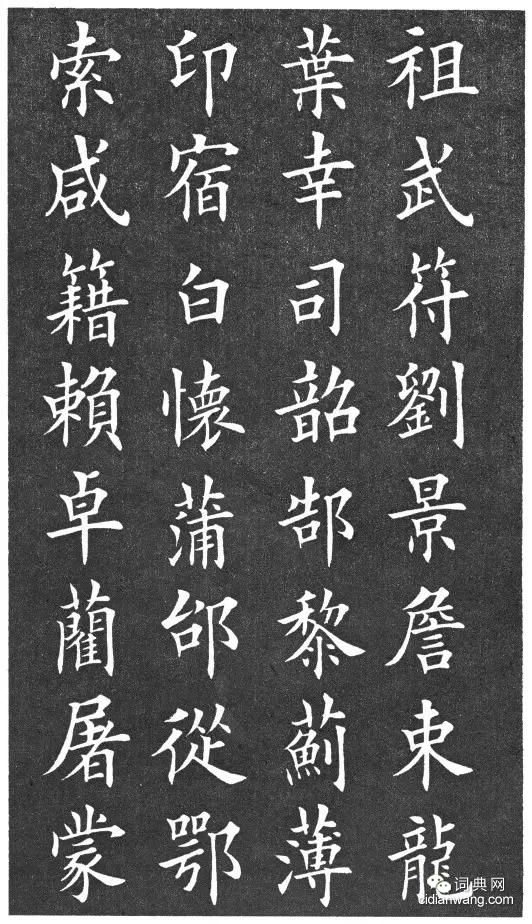 祖武符劉景詹束龍
葉幸司韶郜黎薊薄
印宿白懷蒲邰從鄂
索咸籍賴卓藺屠蒙
词典网
cidianwang.com